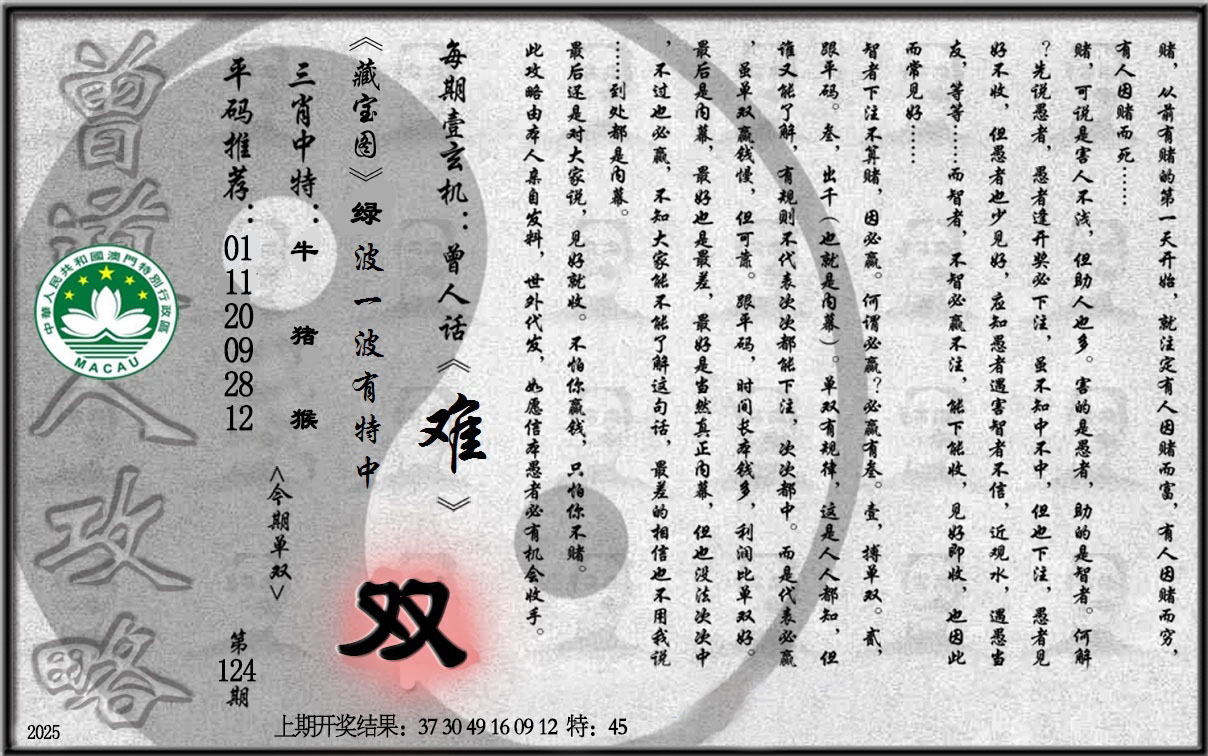 赌，从前有赌的第一天开始，就注定有人因赌而富，有人因赌而穷，
有人因赌而死……
赌，可说是害人不浅，但助人也多。害的是愚者，助的是智者。何解
？先说愚者，愚者逢开奖必下注，虽不知中不中，但也下注，愚者见
好不收，但愚者也少见好，应知愚者遇害智者不信，近观水，遇愚当
友，等等……而智者，不智必赢不注，能下能收，见好即收，也因此
而常见好……
智者下注不算赌，因必赢。何谓必赢？必赢有叁。壹，搏单双。贰，
跟平码。叁，出千（也就是内幕）。单双有规律，这是人人都知，但
谁又能了解，有规则不代表次次都能下注，次次都中。而是代表必赢
，虽单双赢钱慢，但可靠。跟平码，时间长本钱多，利润比单双好。
最后是内幕，最好也是最差，最好是当然真正内幕，但也没法次次中
，不过也必赢，不知大家能不能了解这句话，最差的相信也不用我说
……到处都是内幕。
最后还是对大家说，见好就收。不怕你赢钱，只怕你不赌。
此攻略由本人亲自发料，世外代发，如愿信本愚者必有机会收手。
每期壹玄机：曾人话《难》
《藏宝图》绿波一波有特中
双
三肖中特：牛 猪 猴
<今期单双>
平码推荐：01 11 20 09 28 12
第124期
曾道人攻略
中華人民共和國澳門特別行政區
MACAU
上期开奖结果：37 30 49 16 09 12 特：45
2025